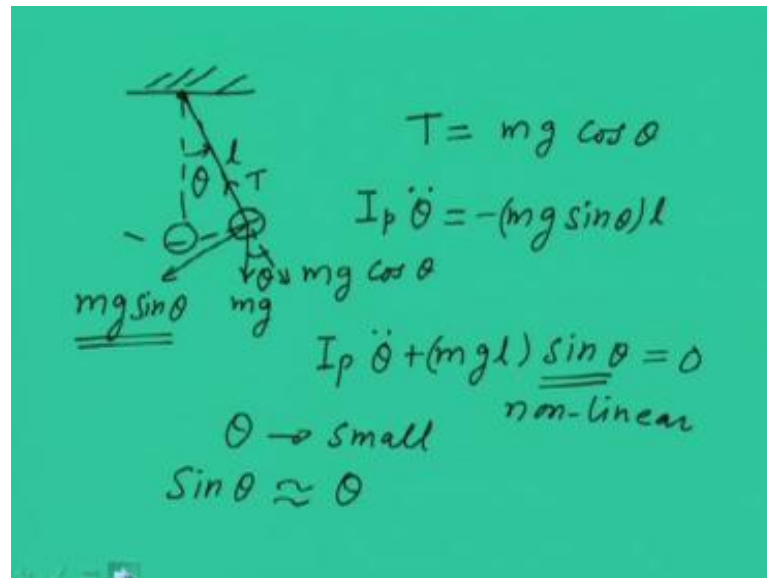 l
θ T
T = mg cos θ
I_p θ̈ = -(mg sin θ) l
θ mg cos θ
mg sin θ mg
I_p θ̈ + (mgl) sin θ = 0
non-linear
θ → small
Sin θ ≈ θ